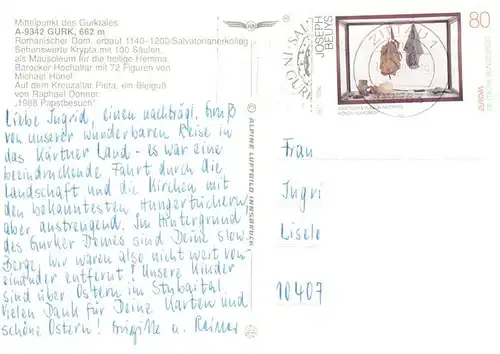 Mittelpunkt des Gurktales
A-9342 GURK, 662 m
Romanischer Dom, erbaut 1140-1200/Salvatorianerkolleg
Sehenswerte Krypta mit 100 Säulen
als Mausoleum für die heilige Hemma.
Barocker Hochaltar mit 72 Figuren von
Michael Hönel
Auf dem Kreuzaltar Pieta, ein Bleiguß
von Raphael Donner.
"1988 Papstbesuch"
Liebe Ingrid, einen nachträgl. Gruß
von unserer wunderbaren Reise in
das Kärtner Land - es war eine
beeindruckende Fahrt durch die
Landschaft und die Kirchen mit
den bekanntesten Hungertüchern
aber anstrengend. Im Hintergrund
des Gurker Domes sind Deine slow.
Berge. Wir waren also nicht weit von-
einander entfernt! Unsere Kinder
sind über Ostern im Stubaital.
Vielen Dank für Deine Karten und
schöne Ostern! Brigitte u. Reiner
© ALPINE LUFTBILD INNSBRUCK
JOSEPH
BEUYS
80
EUROPA
Frau
Ingri
Liselo
10407